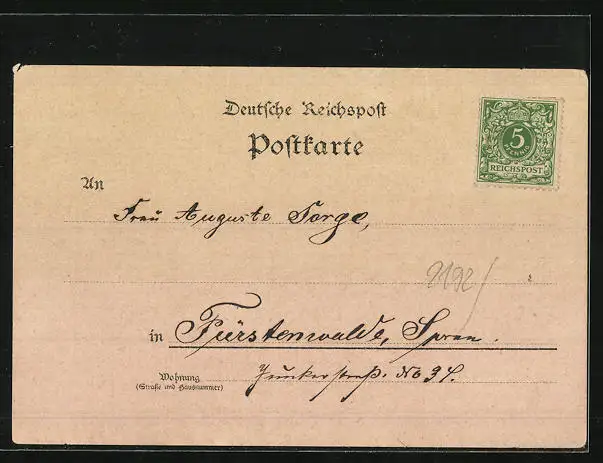 Deutsche Reichspost
Postkarte
5
REICHSPOST
An
Frau Auguste Sorge,
2192/
in Fürstenwalde, Spree.
Wohnung
(Straße und Hausnummer)
Junkerstraß. No 34.